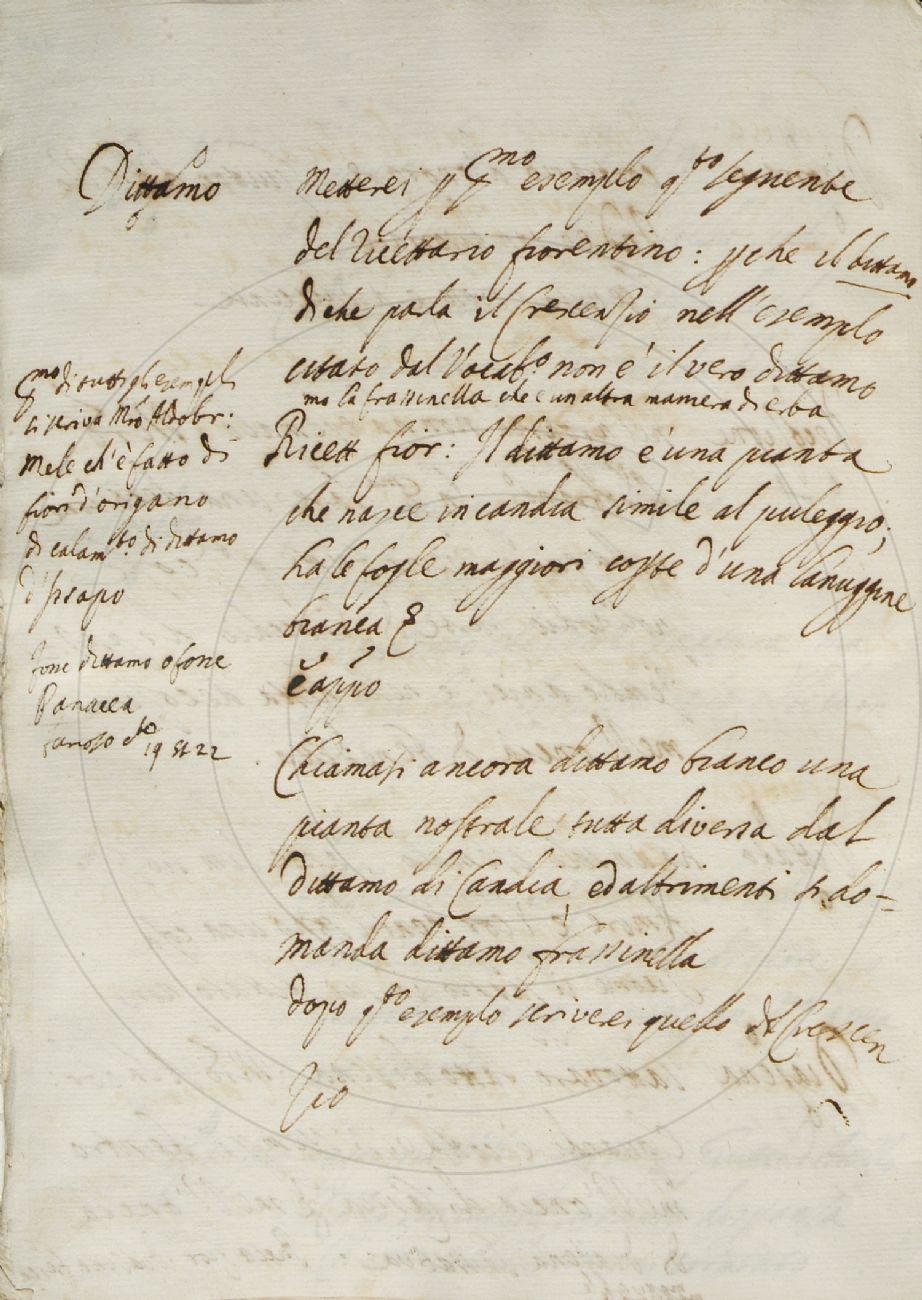 Dittamo
Metterei p pmo esempio qto seguente
del Ricettario fiorentino: pche il dittamo
di che parla il Crescenzio nell'esempio
citato dal Vocabo non è il vero dittamo
ma la frassinella che è un altra maniera di erba
Ricett fior: Il dittamo è una pianta
che nasce in candia simile al puleggio;
ha le foglie maggiori copte d'una lanuggine
bianca
e appo
Chiamasi ancora dittamo bianco una
pianta nostrale tutta diversa dal
dittamo di Candia, ed altrimenti si do-
manda dittamo frassinella
dopo qto esempio scriverei quello del Crescen
zio
pmo di tutti gli esempli
si scriva Mro Aldobr:
Mele ch'è fatto di
fiori d'origano
di calamto di dittamo
d'Isapo
dittamo
Panacea
19 st 22